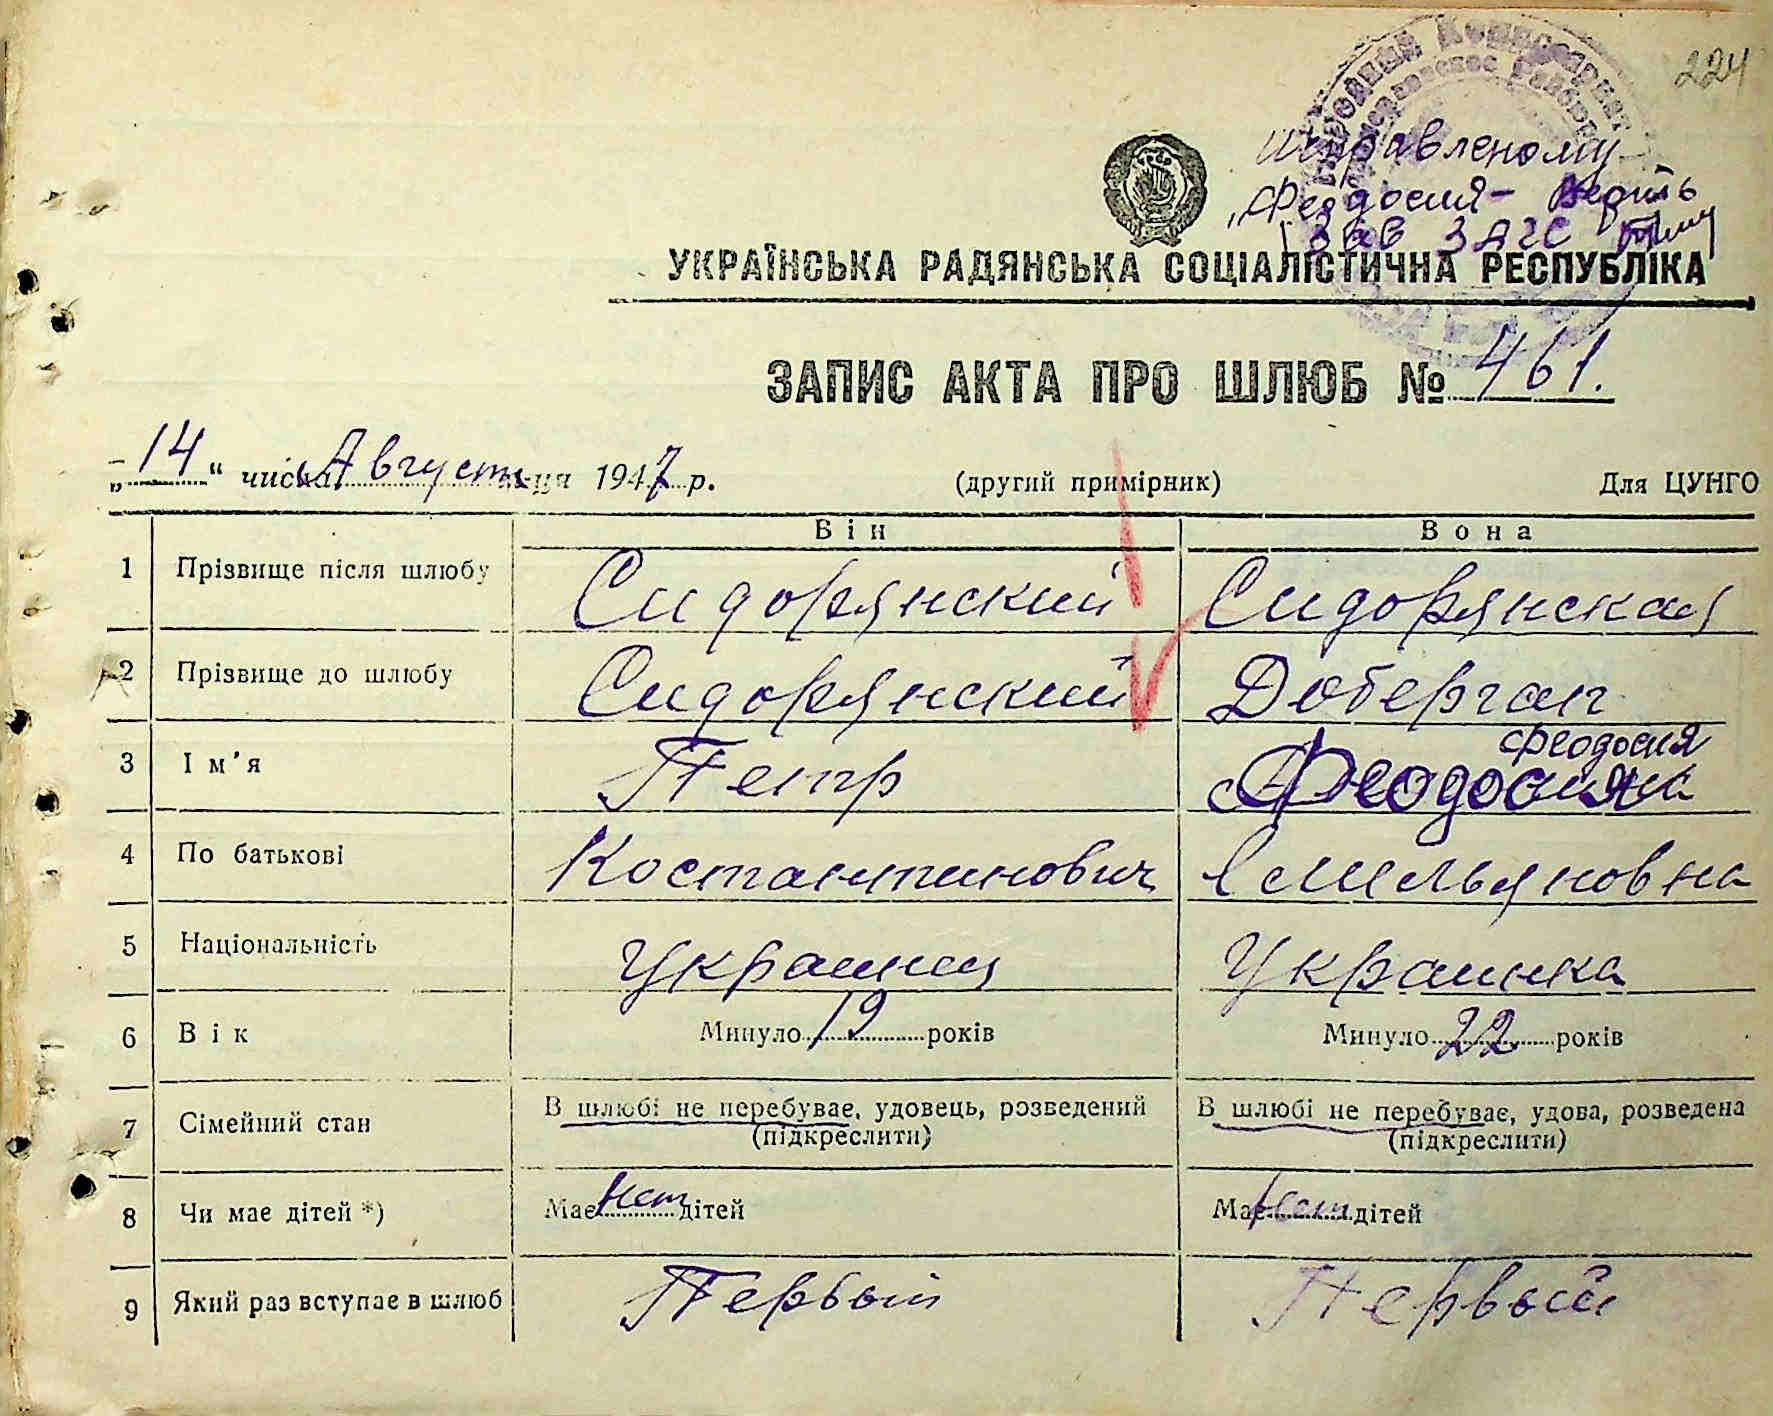 224
Исправленому
"Феодосия- верить
Зав ЗАГС
УКРАЇНСЬКА РАДЯНСЬКА СОЦІАЛІСТИЧНА РЕСПУБЛІКА
ЗАПИС АКТА ПРО ШЛЮБ № 461.
„14“ числа Август місяця 1947 р. (другий примірник) Для ЦУНГО
Він Вона
1 Прізвище після шлюбу Сидорянский Сидорянская
2 Прізвище до шлюбу Сидорянский Доберчап
Феодосия
3 Ім'я Петр Феодосия
4 По батькові Костантинович Емильяновна
5 Національність Украинец Украинка
6 Вік Минуло 19 років Минуло 22 років
7 Сімейний стан В шлюбі не перебуває, удовець, розведений В шлюбі не перебуває, удова, розведена
(підкреслити) (підкреслити)
8 Чи має дітей *) Має нет дітей Має нет дітей
9 Який раз вступає в шлюб Первый Первый